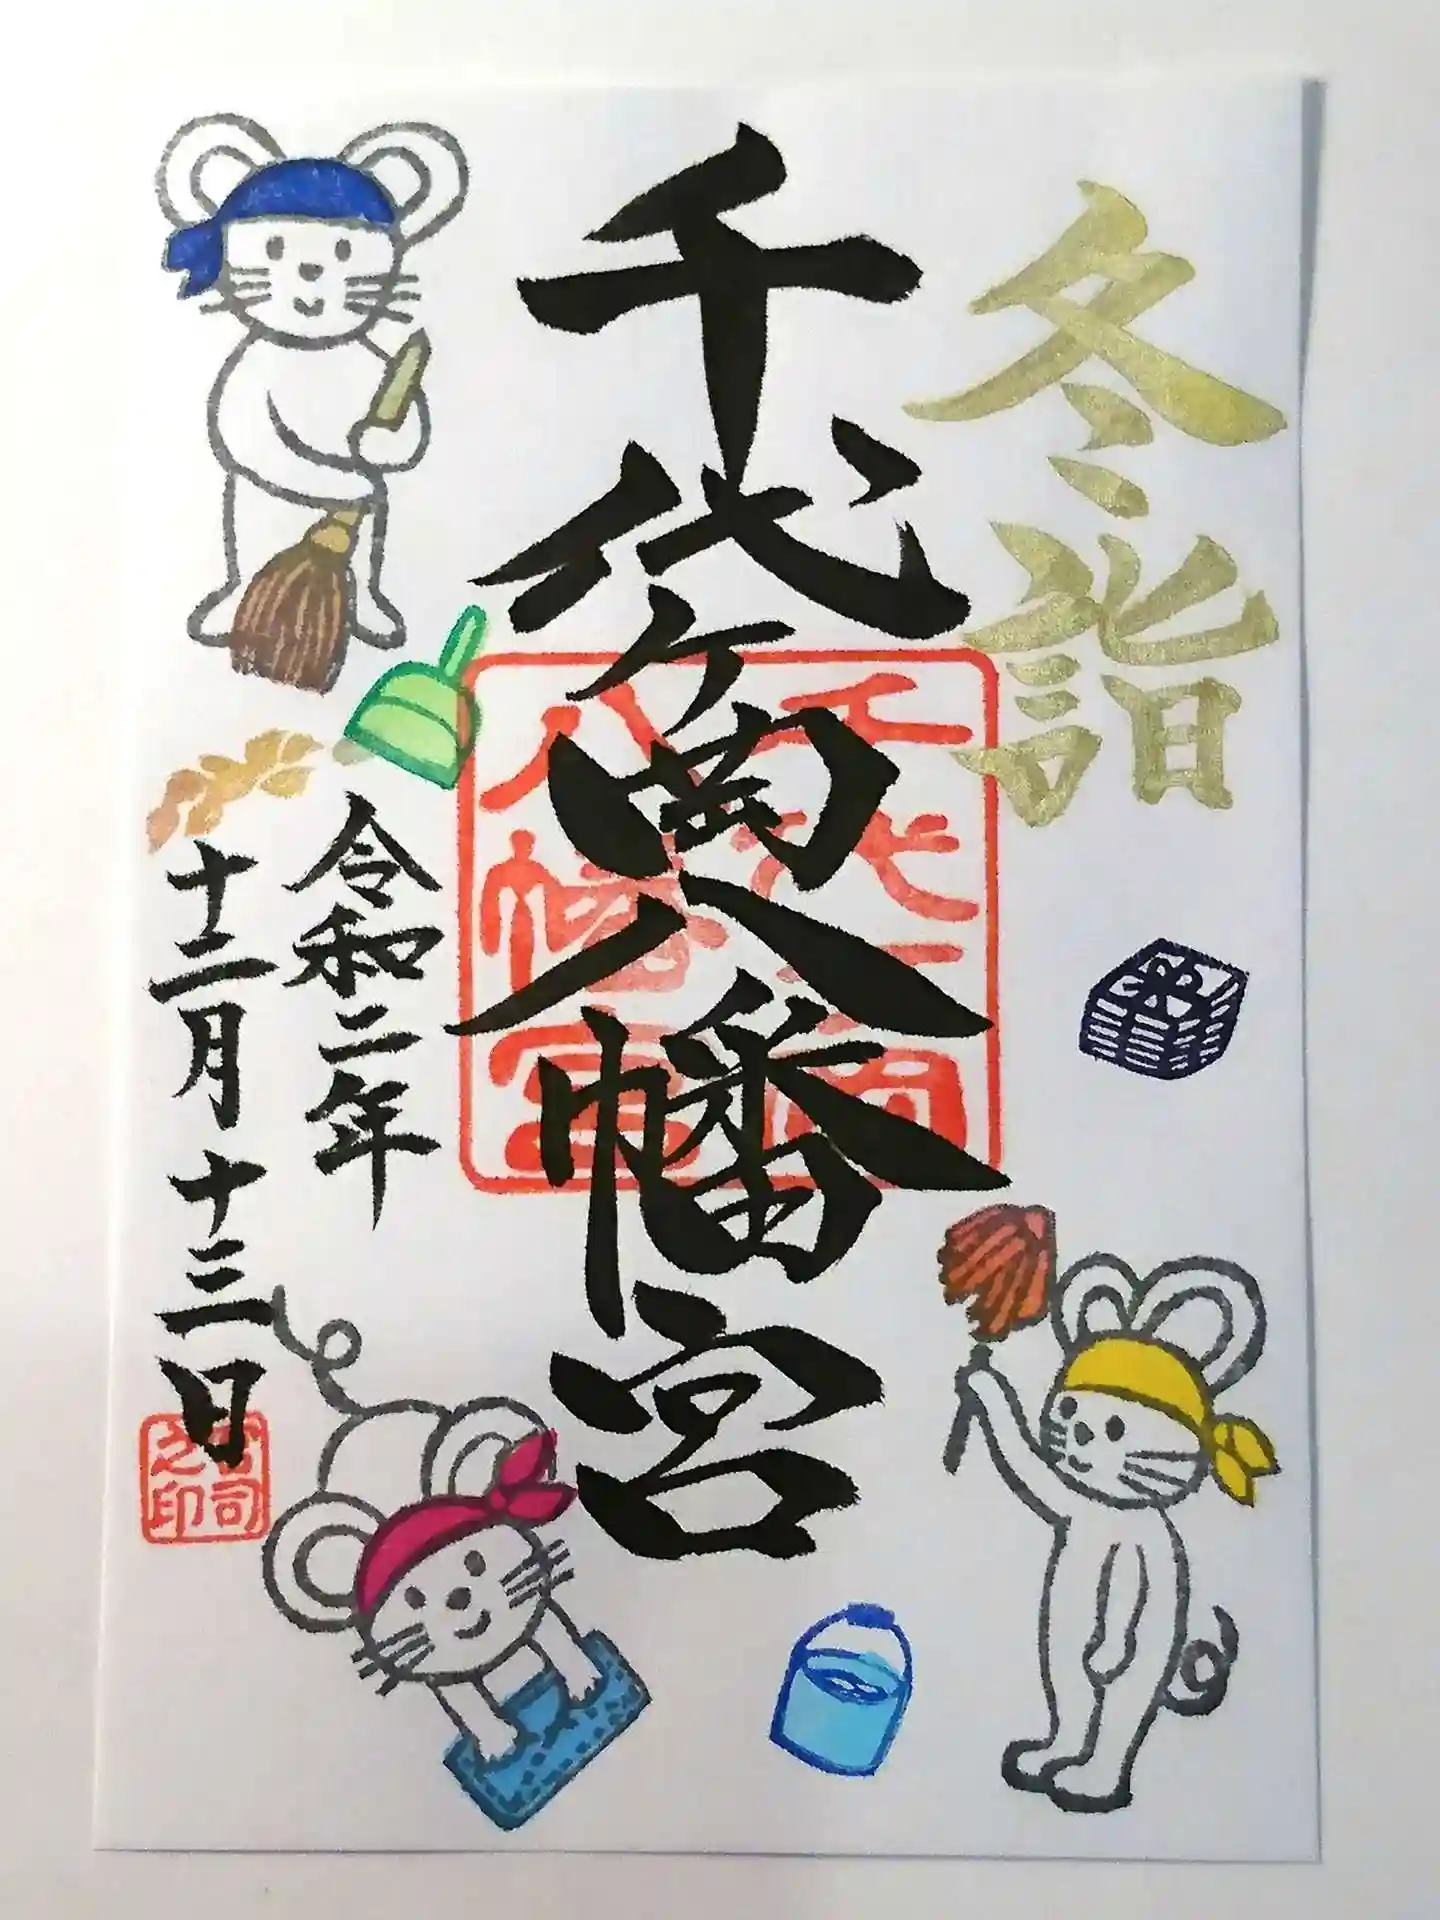 冬詣
千代ケ岡八幡宮
千代ケ岡
八幡宮
令和二年
十二月十三日
宮司
之印